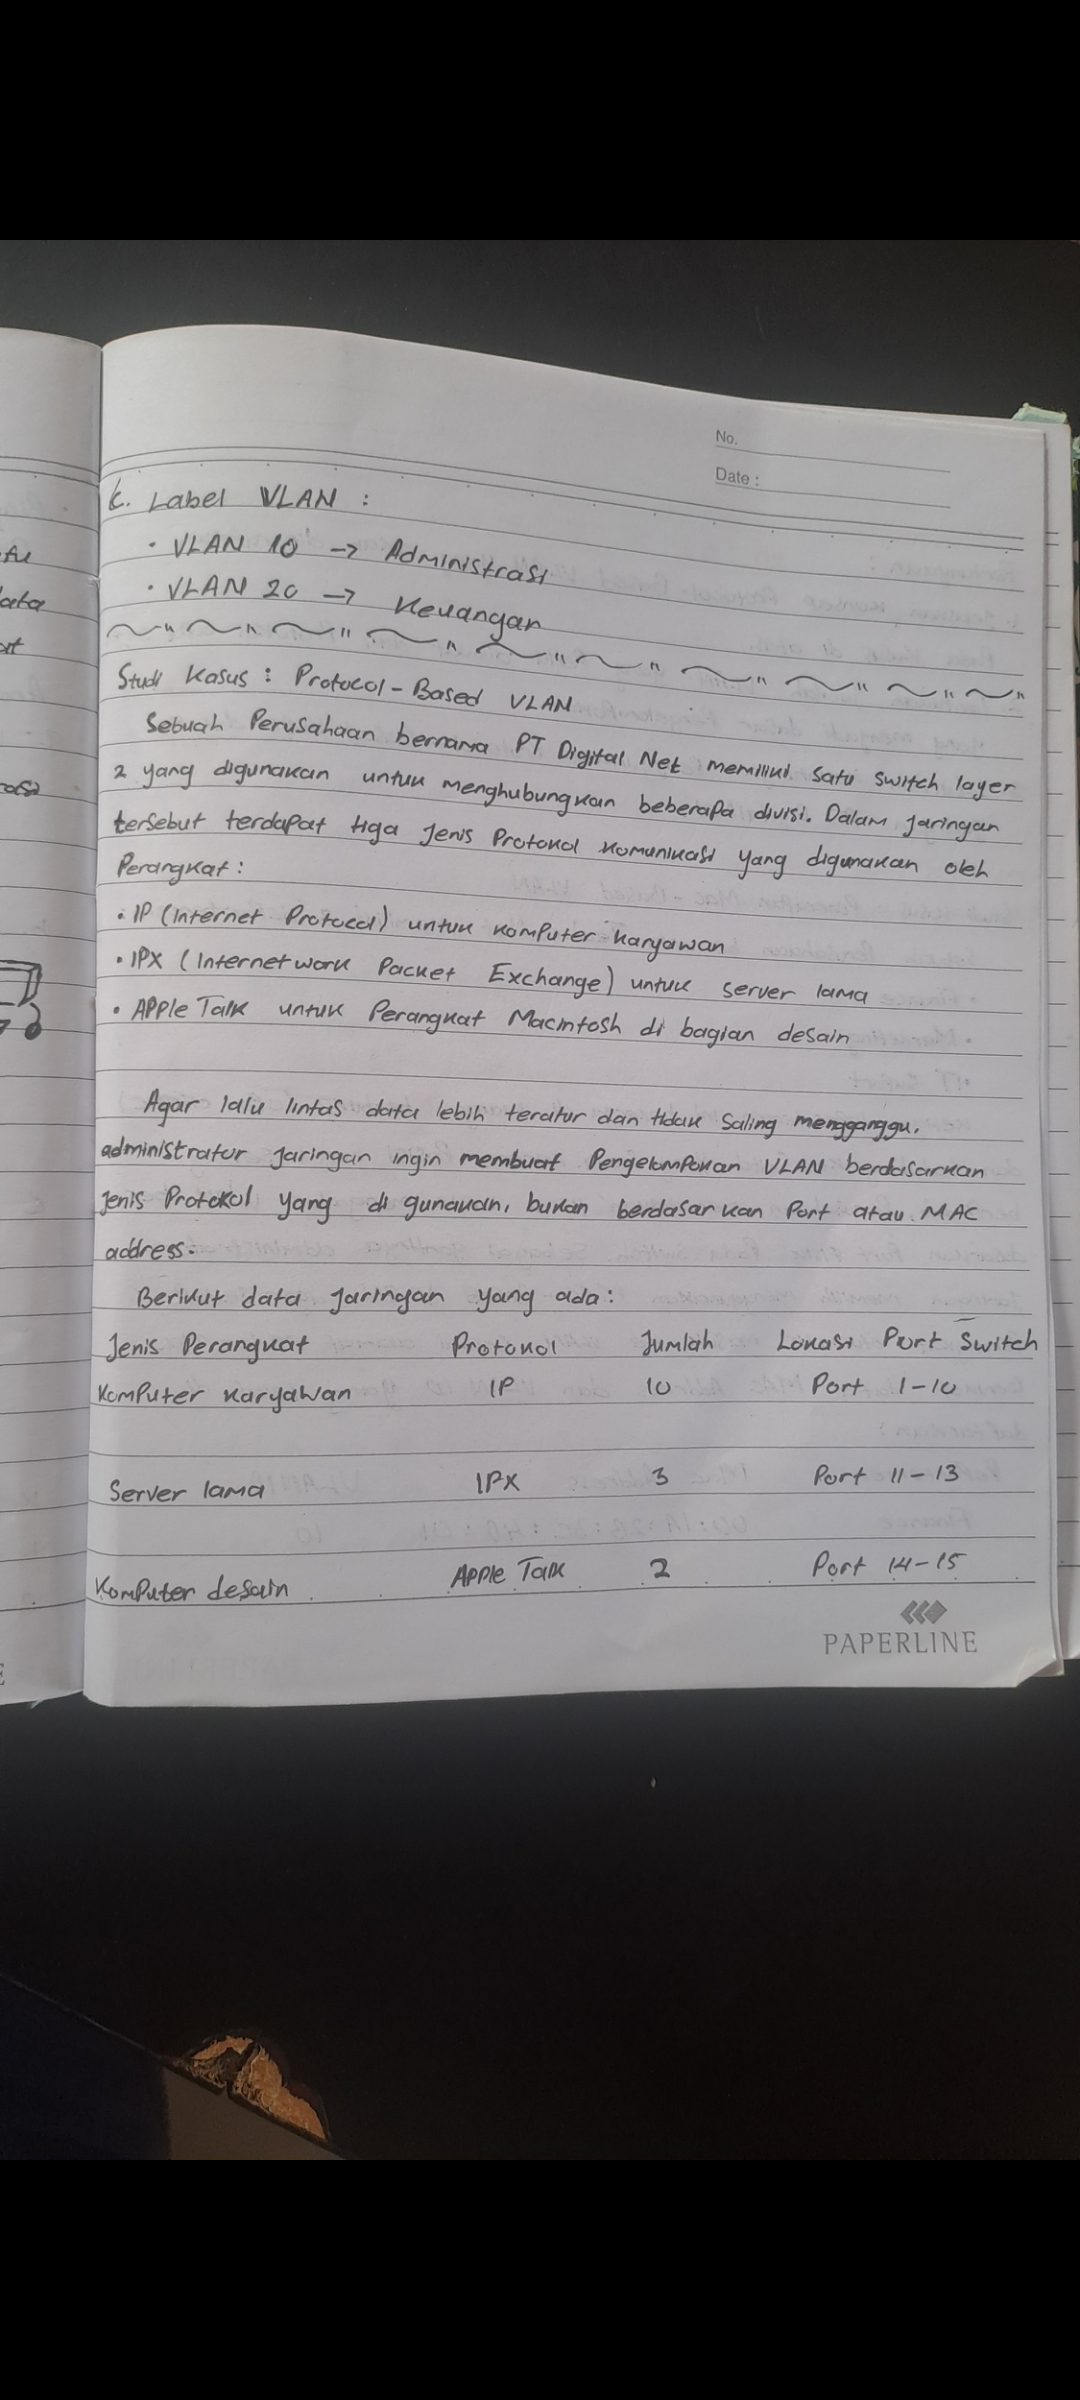 No.
Date :
C. Label VLAN :
• VLAN 10 → Administrasi
• VLAN 20 → Keuangan
Studi Kasus : Protocol-Based VLAN
Sebuah Perusahaan bernama PT Digital Net memiliki satu switch layer
2 yang digunakan untuk menghubungkan beberapa divisi. Dalam jaringan
tersebut terdapat tiga jenis Protokol komunikasi yang digunakan oleh
Perangkat :
• IP (Internet Protocol) untuk komputer karyawan
• IPX (Internetwork Packet Exchange) untuk server lama
• Apple Talk untuk Perangkat Macintosh di bagian desain
Agar lalu lintas data lebih teratur dan tidak saling mengganggu,
administrator jaringan ingin membuat Pengelompokan VLAN berdasarkan
jenis Protokol yang di gunakan, bukan berdasarkan Port atau MAC
address.
Berikut data jaringan yang ada :
Jenis Perangkat Protokol Jumlah Lokasi Port Switch
Komputer karyawan IP 10 Port 1-10
Server lama IPX 3 Port 11-13
Komputer desain Apple Talk 2 Port 14-15
PAPERLINE